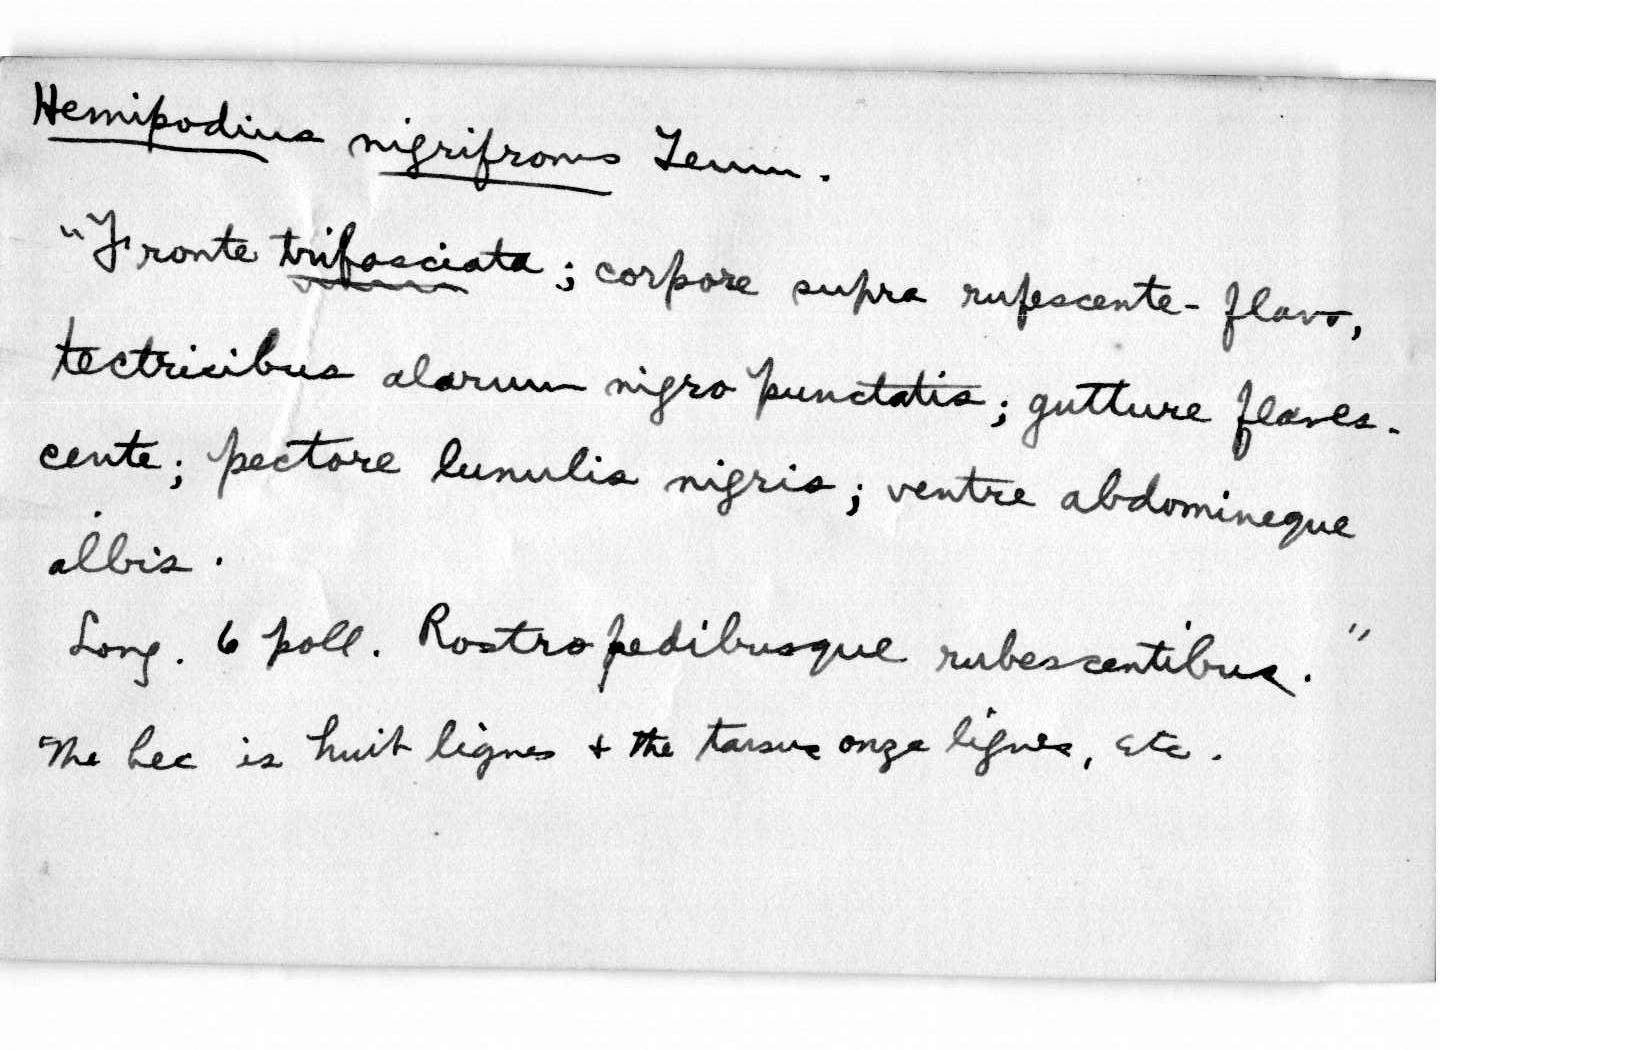 Hemipodius nigrifrons Temm.
"Fronte trifasciata; corpore supra rufescente-flavo,
tectricibus alarum nigro punctatis; gutture flaves-
cente; pectore lunulis nigris; ventre abdomineque
albis.
Long. 6 poll. Rostro pedibusque rubescentibus."
The bec is huit lignes + the tarsus onze lignes, etc.